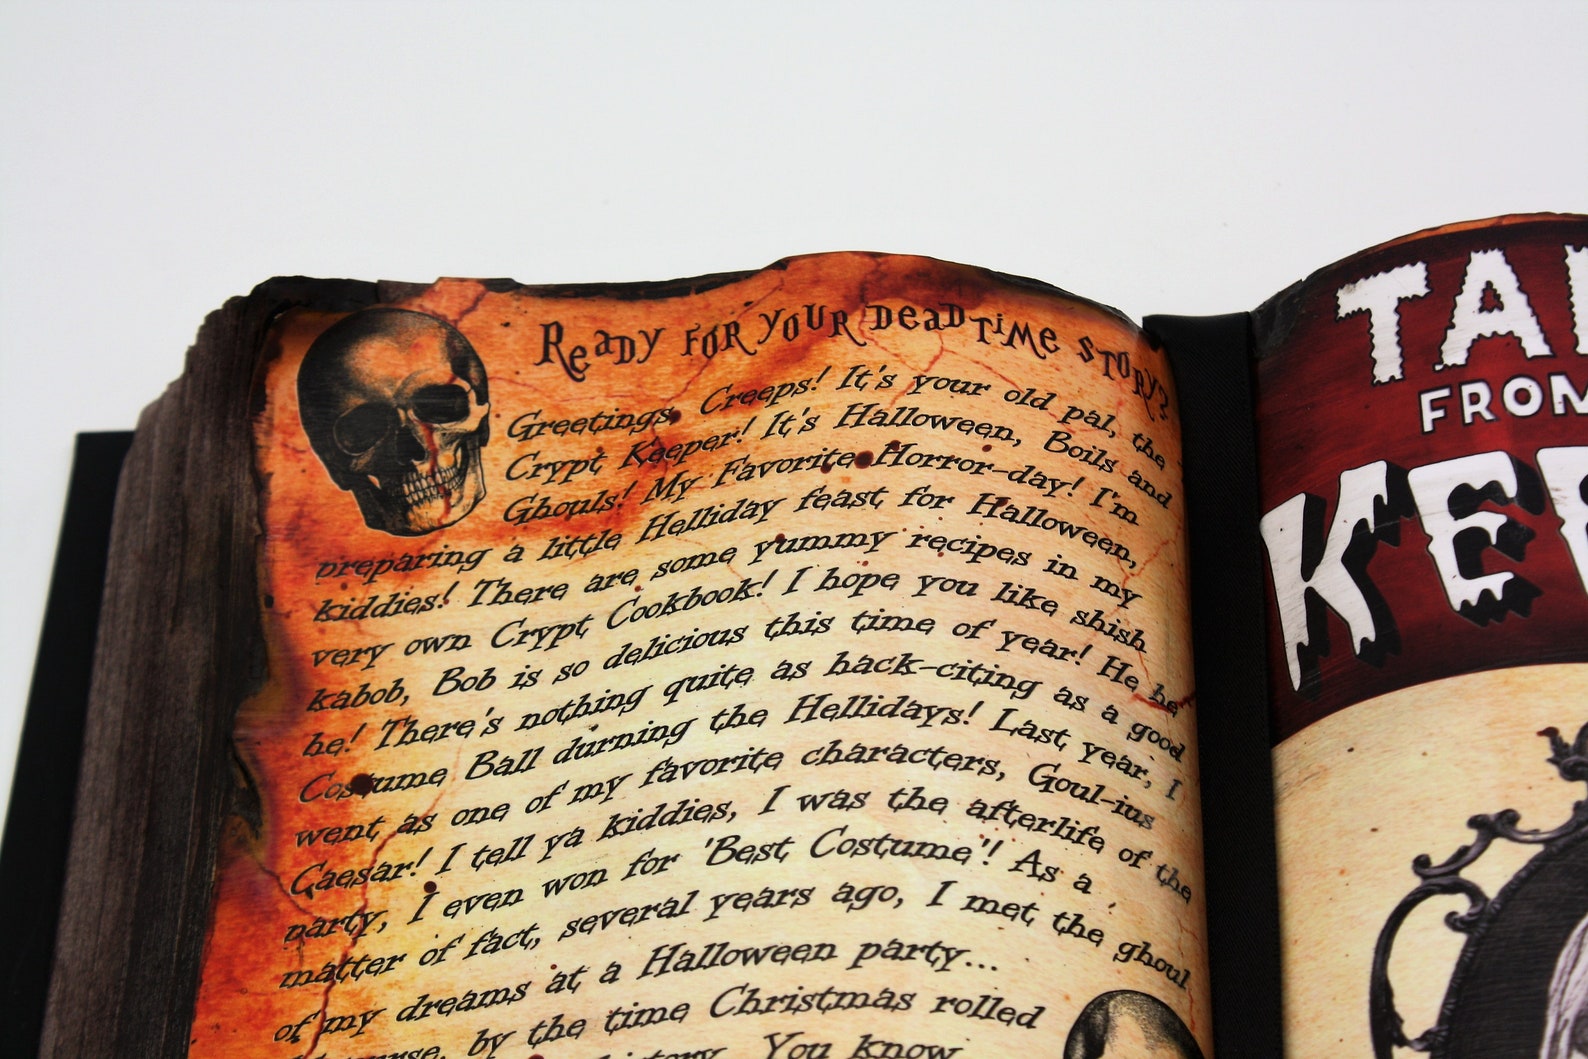 Ready for your deadtime story?
Greetings, Creeps! It's your old pal, the
Crypt Keeper! It's Halloween, Boils and
Ghouls! My Favorite Horror-day! I'm
preparing a little Helliday feast for Halloween,
kiddies! There are some yummy recipes in my
very own Crypt Cookbook! I hope you like shish
kabob, Bob is so delicious this time of year! He he
he! There's nothing quite as hack-citing as a good
Costume Ball durning the Hellidays! Last year, I
went as one of my favorite characters, Goul-ius
Caesar! I tell ya kiddies, I was the afterlife of the
party, I even won for 'Best Costume'! As a
matter of fact, several years ago, I met the ghoul
of my dreams at a Halloween party...
by the time Christmas rolled
You know
TA
FROM
KEE